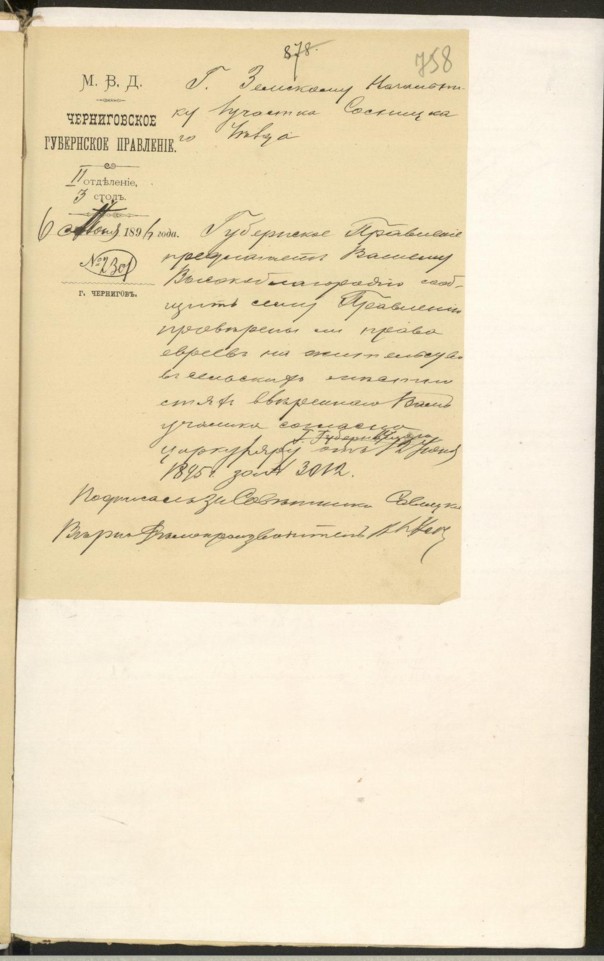 878.
758
М. В. Д.
ЧЕРНИГОВСКОЕ
ГУБЕРНСКОЕ ПРАВЛЕНІЕ.
II
отдѣленіе,
3 столъ.
6 189 года.
№ 2301
г. ЧЕРНИГОВЪ.
Г. Земскому Начальни-
ку участка Сосницка
го Уѣзда
Губернское Правленіе
предлагаетъ Вашему
Высокоблагородію сооб-
щить сему Правленію
провѣрены ли права
евреевъ на жительство
въ сельскихъ мѣстно
стяхъ ввѣреннаго Вамъ
участка согласно
циркуляру Г. Губернатора отъ 12 Іюня
1895 г. за № 3012.
Подписалъ: за Совѣтника
Вѣрно: Дѣлопроизводитель